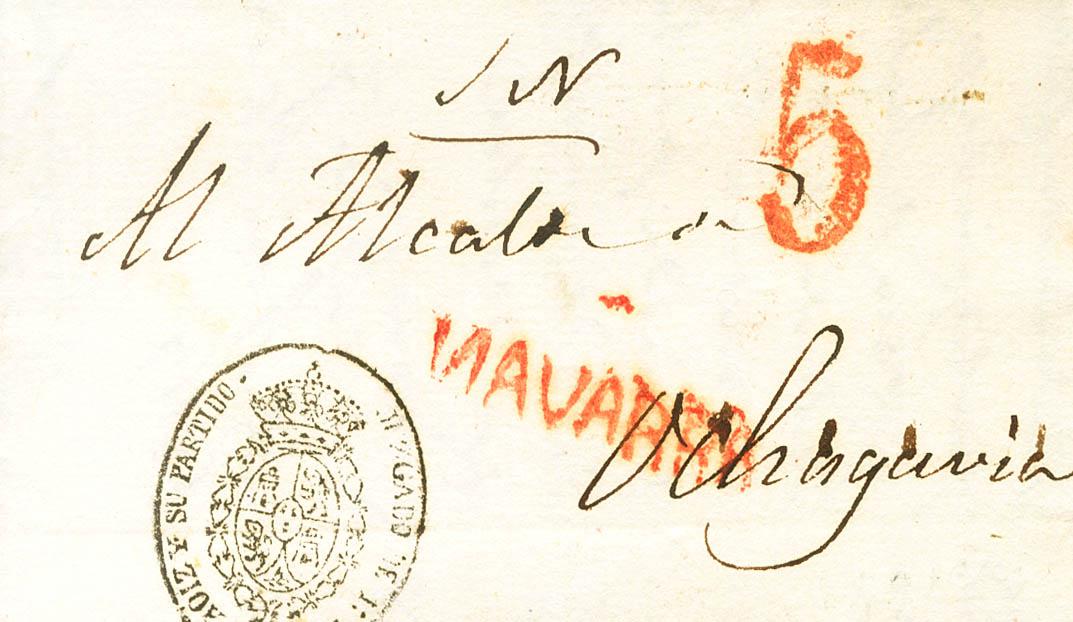 S N
5
Al Alcalde de
NAVARRA
Ochagavia
AOIZ Y SU PARTIDO. JUZGADO DE 1ª